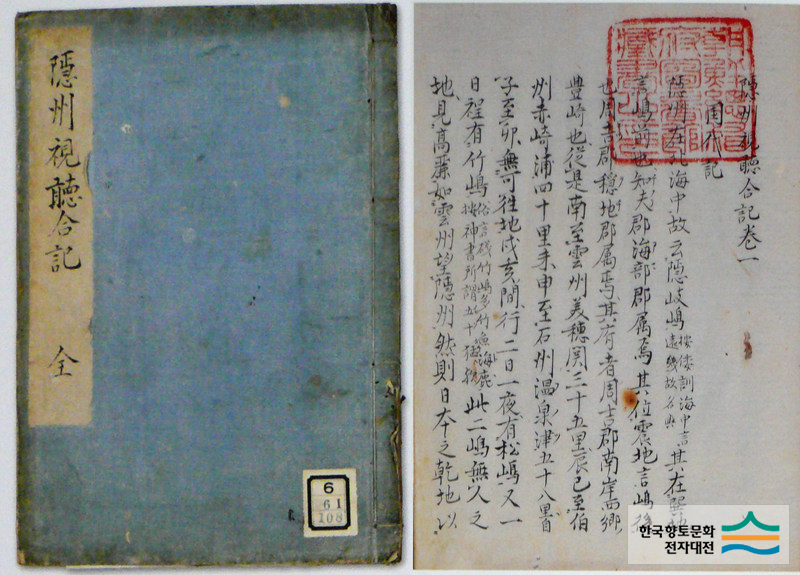 隱州視聽合記 全
6
61
108
隱州視聽合記卷一
国代記
隱州在北海中故云隱岐嶋按倭訓海中言遠幾故名歟其在巽地
言嶋前也知夫郡海部郡属焉其位震地言嶋後
也周吉郡穩地郡属焉其府者周吉郡南岸西鄉
豊崎也從是南至雲州美穗関三十五里辰巳至伯
州赤崎浦四十里未申至石州温泉津五十八里自
子至卯無可往地戍亥間行二日一夜有松嶋又一
日程有竹嶋俗言磯竹嶋多竹魚海鹿按神書所謂五十猛歟此二嶋無人之
地見髙麗如雲州望隱州然則日本之乾地以
한국향토문화
전자대전